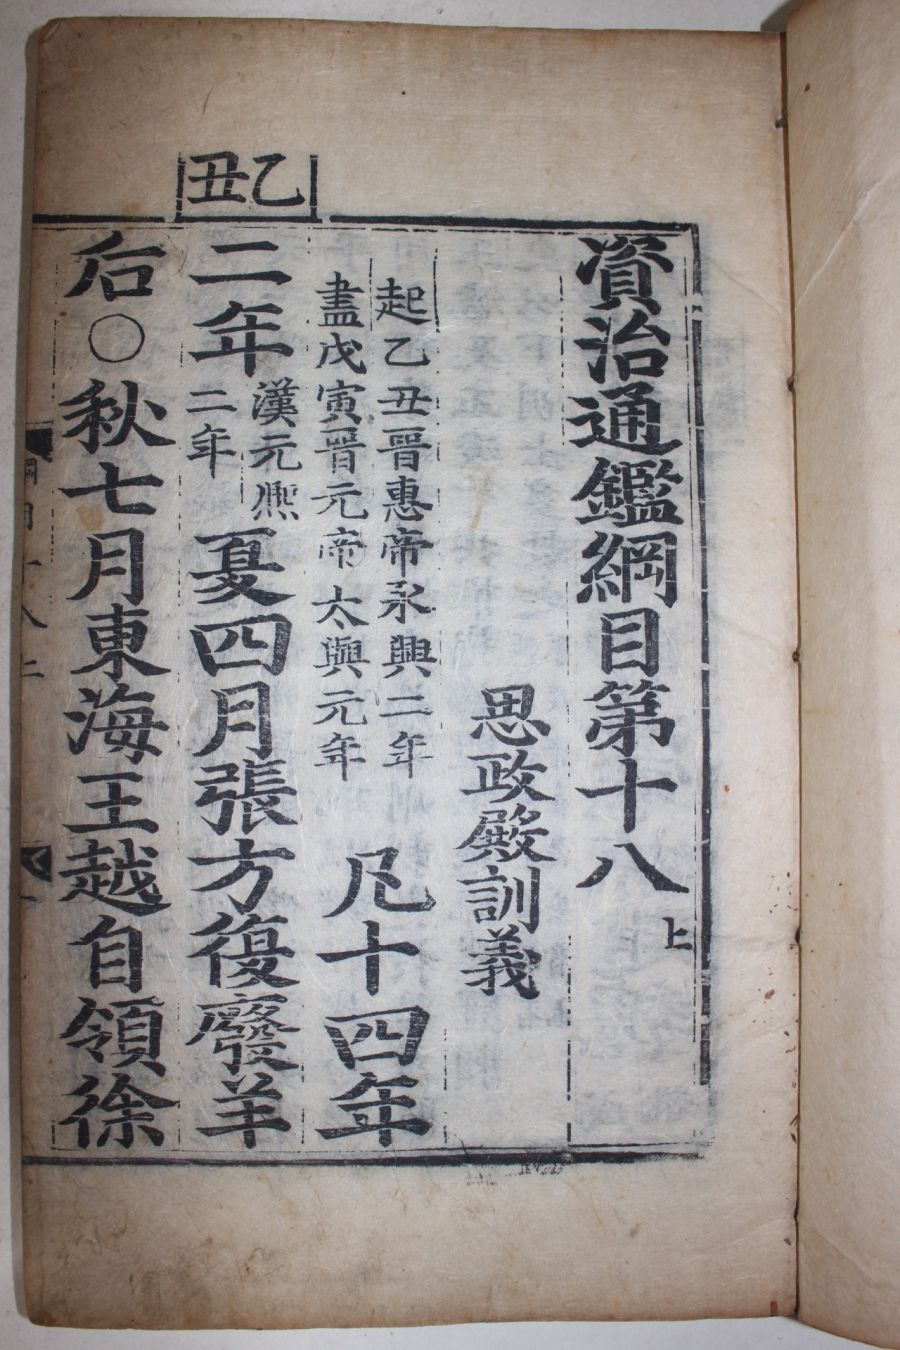 資治通鑑綱目第十八上
思政殿訓義
起乙丑晉惠帝永興二年
盡戊寅晉元帝太興元年
凡十四年
乙丑
二年漢元熈二年夏四月張方復廢羊
后○秋七月東海王越自領徐